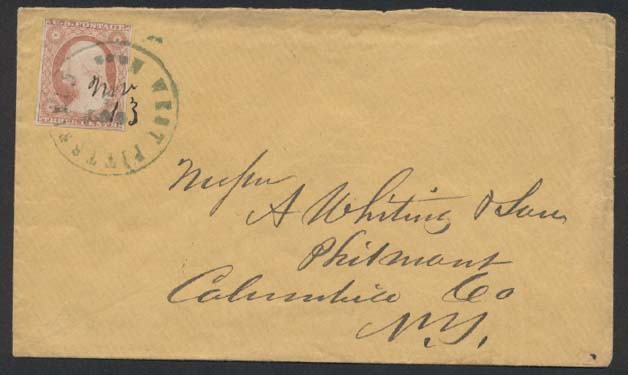 U.S. POSTAGE
THREE CENTS
WEST PITTSF
Nov
13
Messrs
A Whiting & Son
Philmont
Columbia Co
N.Y.